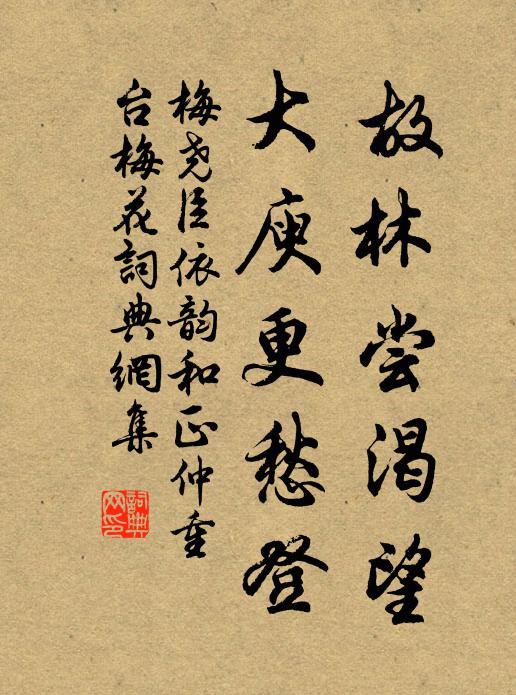 故林尝渴望
大庾更愁登
梅尧臣依韵和正仲重
台梅花詞典網集
詞典
网印